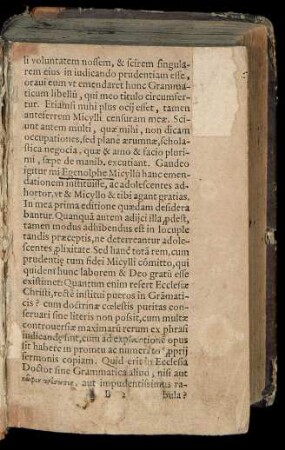 li voluntatem nossem, & scirem singula-
rem eius in iudicando prudentiam esse,
oraui eum vt emendaret hunc Gramma-
ticum libellū, qui meo titulo circumfer-
tur. Etiamsi mihi plus ocij esset, tamen
anteferrem Micylli censuram meæ. Sci-
unt autem multi, quæ mihi, non dicam
occupationes, sed planè ærumnæ, schola-
stica negocia, quæ & amo & facio pluri-
mi, sæpe de manib. excutiant. Gaudeo
igitur mi Egenolphe Micyllū hanc emen-
dationem instituisse, ac adolescentes ad-
hortor, vt & Micyllo & tibi agant gratias.
In mea prima editione quædam desidera
bantur. Quanquā autem adijci illa,
tamen modus adhibendus est in locuple
tandis præceptis, ne deterreantur adole-
scentes Sed hanc totā rem, cum
prudentię tum fidei Micylli cōmitto, qui
quidem hunc laborem & Deo gratū esse
existimet: Quantum enim refert Ecclesiæ
Christi, rectè institui pueros in Grāmati-
cis? cum doctrinæ cœlestis puritas con-
seruari sine literis non possit, cum multæ
controuersiæ maximarū rerum ex phrasi
iudicandæ sint, cum ad explicationē opus
sit habere in promtu ac numerato
sermonis copiam. Quid erit in Ecclesia
Doctor sine Grammatica aliud, nisi aut
aut impudentissimus ra-
bula?